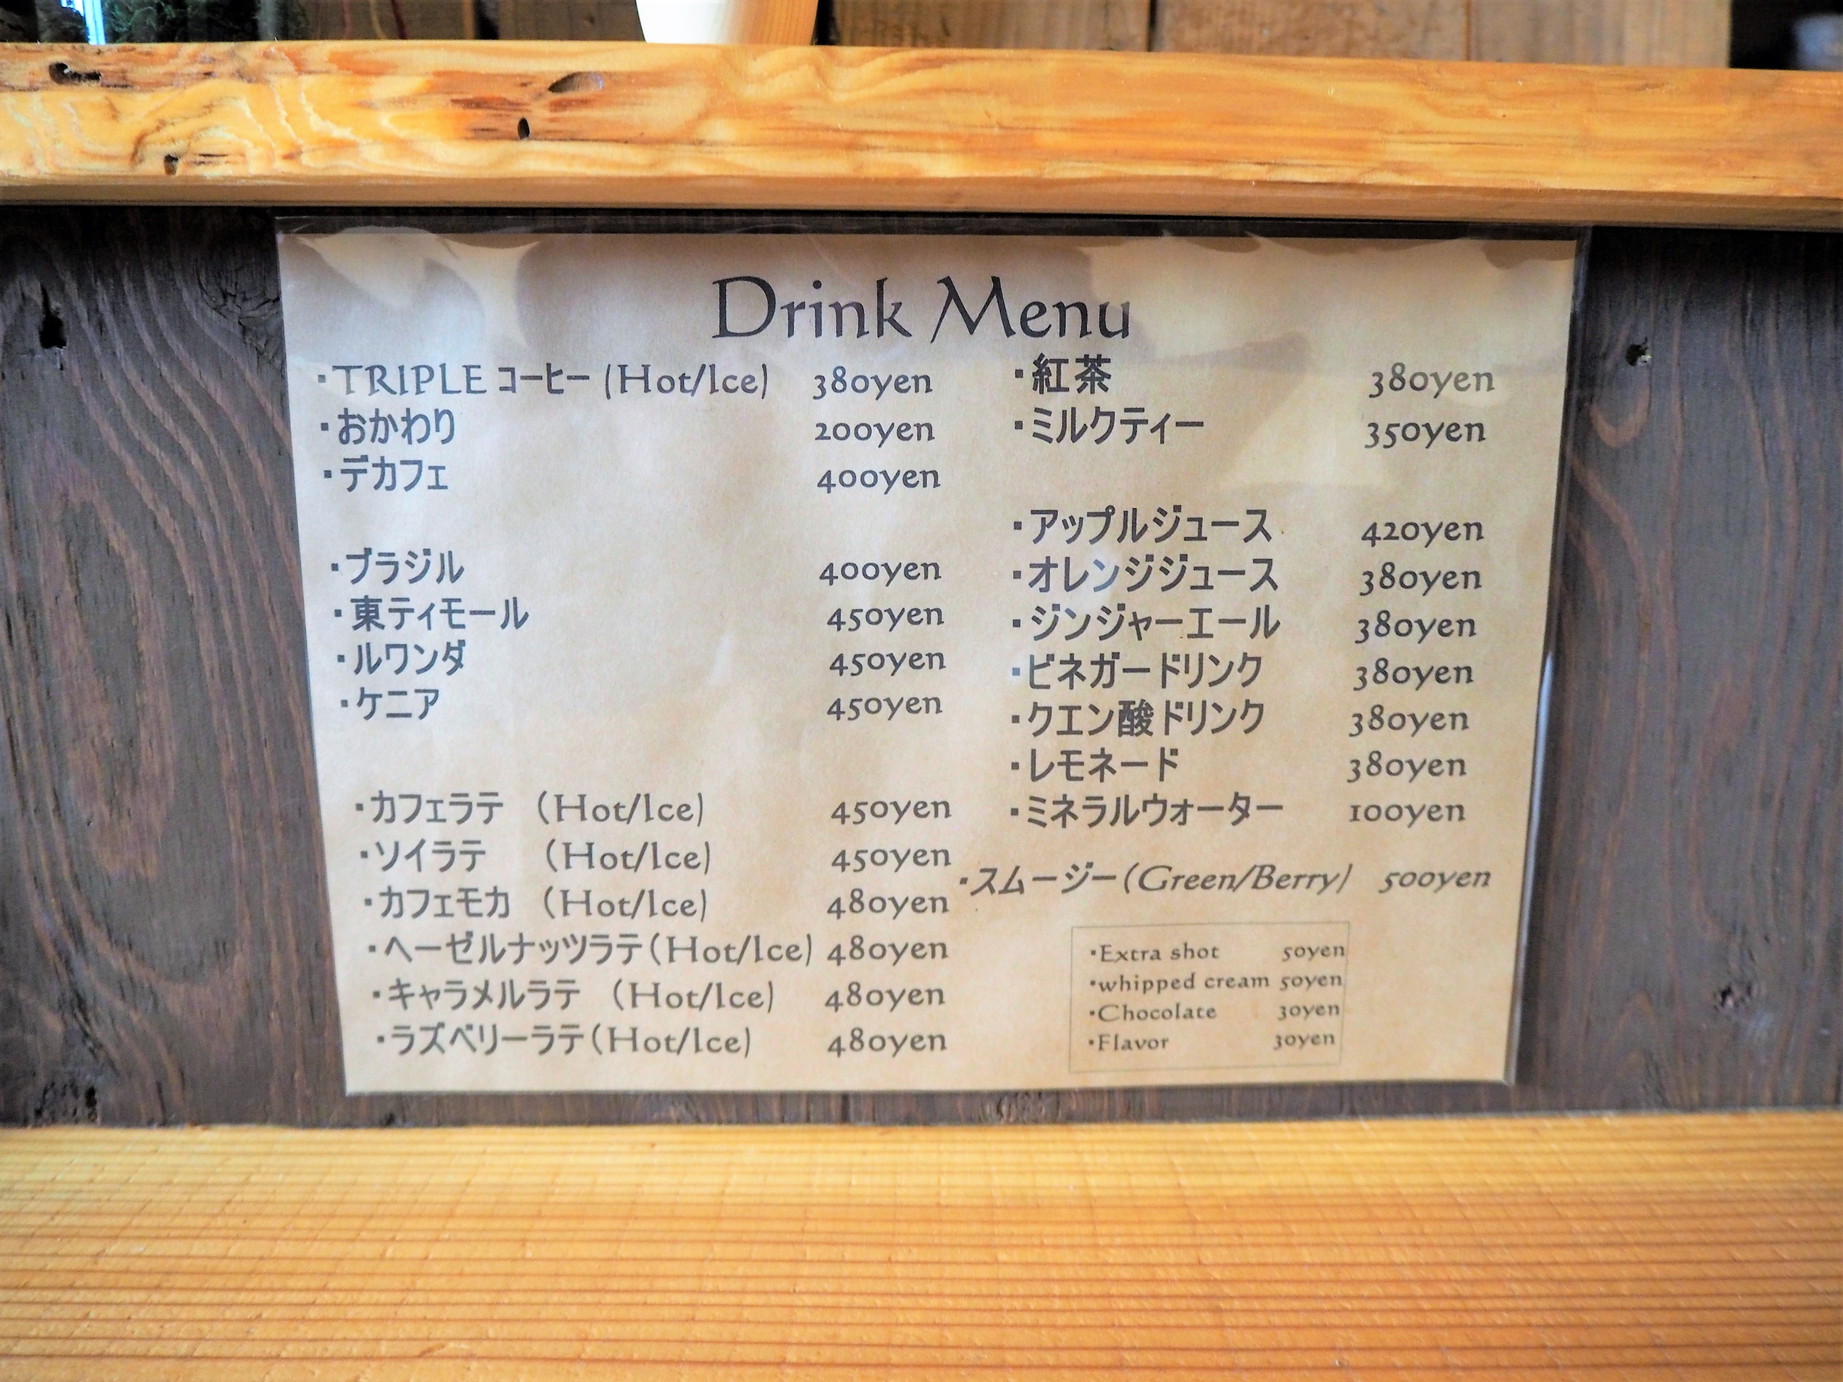 Drink Menu
・TRIPLE コーヒー (Hot/Ice) 380yen
・おかわり 200yen
・デカフェ 400yen
・ブラジル 400yen
・東ティモール 450yen
・ルワンダ 450yen
・ケニア 450yen
・カフェラテ (Hot/Ice) 450yen
・ソイラテ (Hot/Ice) 450yen
・カフェモカ (Hot/Ice) 480yen
・ヘーゼルナッツラテ(Hot/Ice) 480yen
・キャラメルラテ (Hot/Ice) 480yen
・ラズベリーラテ(Hot/Ice) 480yen
・紅茶 380yen
・ミルクティー 350yen
・アップルジュース 420yen
・オレンジジュース 380yen
・ジンジャーエール 380yen
・ビネガードリンク 380yen
・クエン酸ドリンク 380yen
・レモネード 380yen
・ミネラルウォーター 100yen
・スムージー(Green/Berry) 500yen
・Extra shot 50yen
・whipped cream 50yen
・Chocolate 30yen
・Flavor 30yen